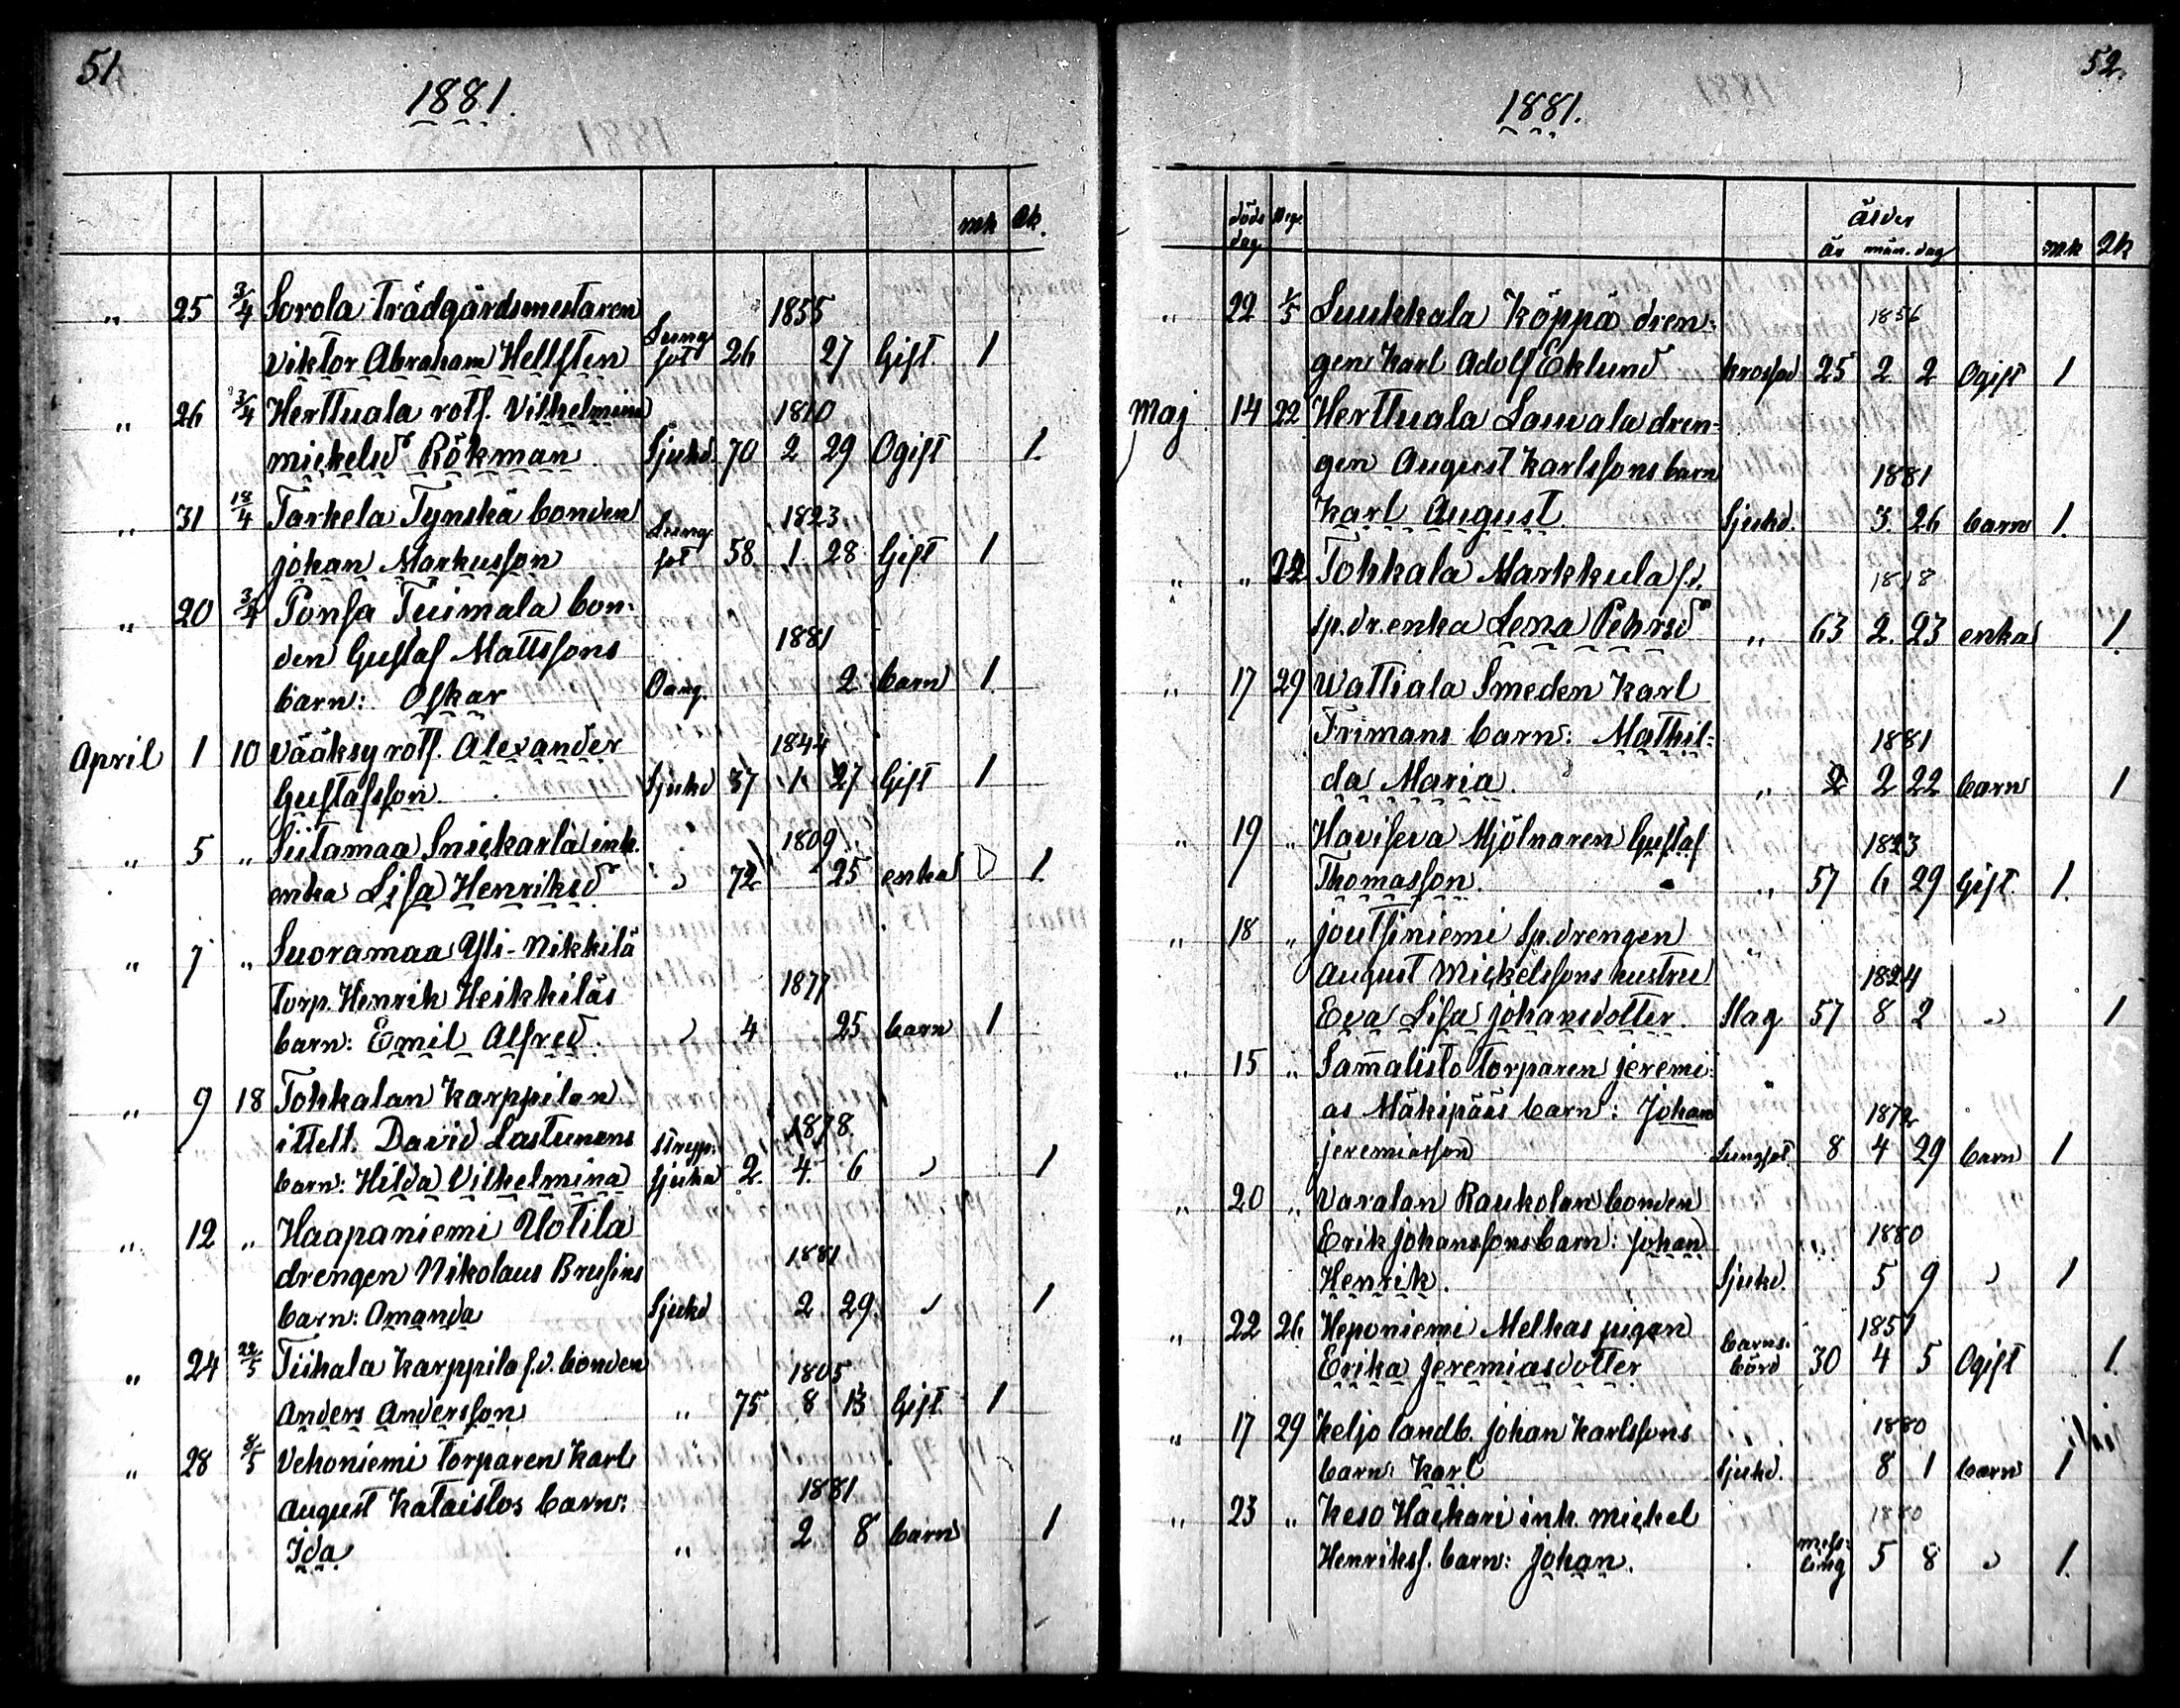 51.
1881.
mk qk.
„ 25 3/4 Sorola Trädgårdsmestaren 1855
Viktor Abraham Hellsten Lungsot 26 27 Gift 1
„ 26 3/4 Herttuala rotf. Vilhelmina 1810
Mickelsd Rökman Sjukd. 70 2 29 Ogift 1.
„ 31 18/4 Tarkela Tynskä bonden 1823
Johan Markusson Lungsot 58. 1 28 Gift 1
„ 20 3/4 Ponsa Tuimala bon-
den Gustaf Mattssons 1881
barn: Oskar Oang. 2 barn 1.
April 1 10 Vääksy rotf. Alexander 1844
Gustafsson. Sjukd 37 1 27 Gift 1
„ 5 „ Siitamaa Snickarla inh. 1809
enka Lisa Henriksd „ 72 25 enka 1.
„ 7 „ Suoramaa Yli-Nikkilä
torp. Henrik Heikkiläs 1877
barn: Emil Alfred. „ 4 25 barn 1
„ 9 18 Tohkalan Karppilan
ittell. David Lastunens 1878.
barn: Hilda Vilhelmina Strypsjuka 2. 4. 6 „ 1
„ 12 „ Haapaniemi Uotila
drengen Nikolaus Brusins 1881
barn: Amanda Sjukd 2 29. „ 1
„ 24 22/5 Tiihala Karppila f.d. bonden 1805
Anders Andersson „ 75 8 13 Gift. 1
„ 28 8/5 Vehoniemi torparen Karl
August Kataistos barn: 1881
Ida „ 2. 8 barn 1
52.
1881.
döds dag ålder
år mån. dag mk qk
„ 22 1/5 Luukkala Köppä dren- 1856
gen Karl Adolf Eklund krossad 25 2 2 Ogift 1
Maj 14 22 Herttuala Lauvala dren-
gen August Karlssons barn 1881
Karl August. Sjukd. 3. 26 barn 1.
„ „ 22 Tohkala Markkula f.d. 1818
sp.dr.enka Lena Pehrsd „ 63 2. 23 enka 1.
„ 17 29 Wattiala Smeden Karl
Frimans barn: Mathil- 1881
da Maria. „ 2 22 barn 1
„ 19 „ Haviseva Mjölnaren Gustaf 1823
Thomasson. „ 57 6 29 Gift. 1.
„ 18 „ Joutsiniemi Sp.drengen
August Mickelssons hustru 1824
Eva Lisa Johansdotter. Slag 57 8 2 „ 1
„ 15 „ Sam̄alisto torparen Jeremi-
as Mäkipääs barn: Johan 1872
Jeremiasson Lungsot. 8 4 29 barn 1
„ 20 „ Varalan Raukolan bonden
Erik Johanssons barn: Johan 1880
Henrik. Sjukd. 5 9 „ 1
„ 22 26 Heponiemi Melkas pigan 1851
Erika Jeremiasdotter barnsbörd 30 4 5 Ogift 1.
„ 17 29 Keljo landb. Johan Karlssons 1880
barn: Karl Sjukd. 8 1 barn 1
„ 23 „ Keso Hackari inh. Mickel 1880
Henrikss. barn: Johan. messling 5 8 „ 1.